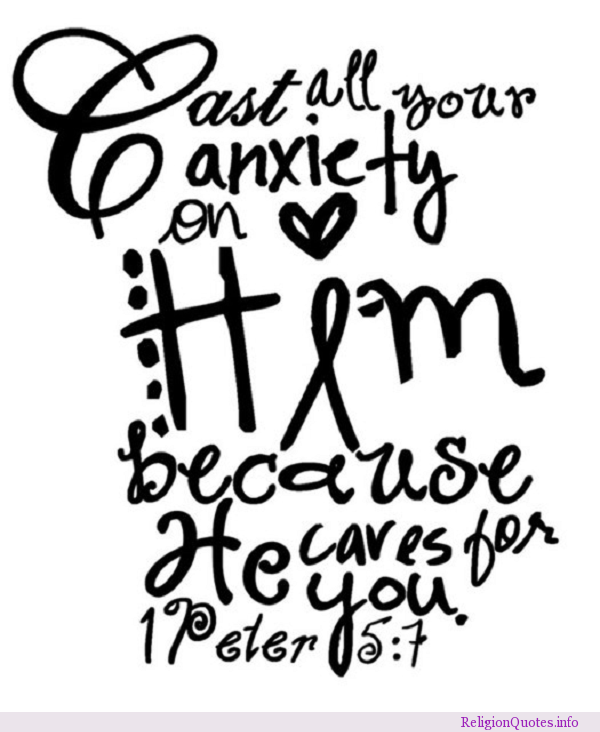 Cast all your
anxiety
on
Him
because
He cares for
you.
1 Peter 5:7
ReligionQuotes.info